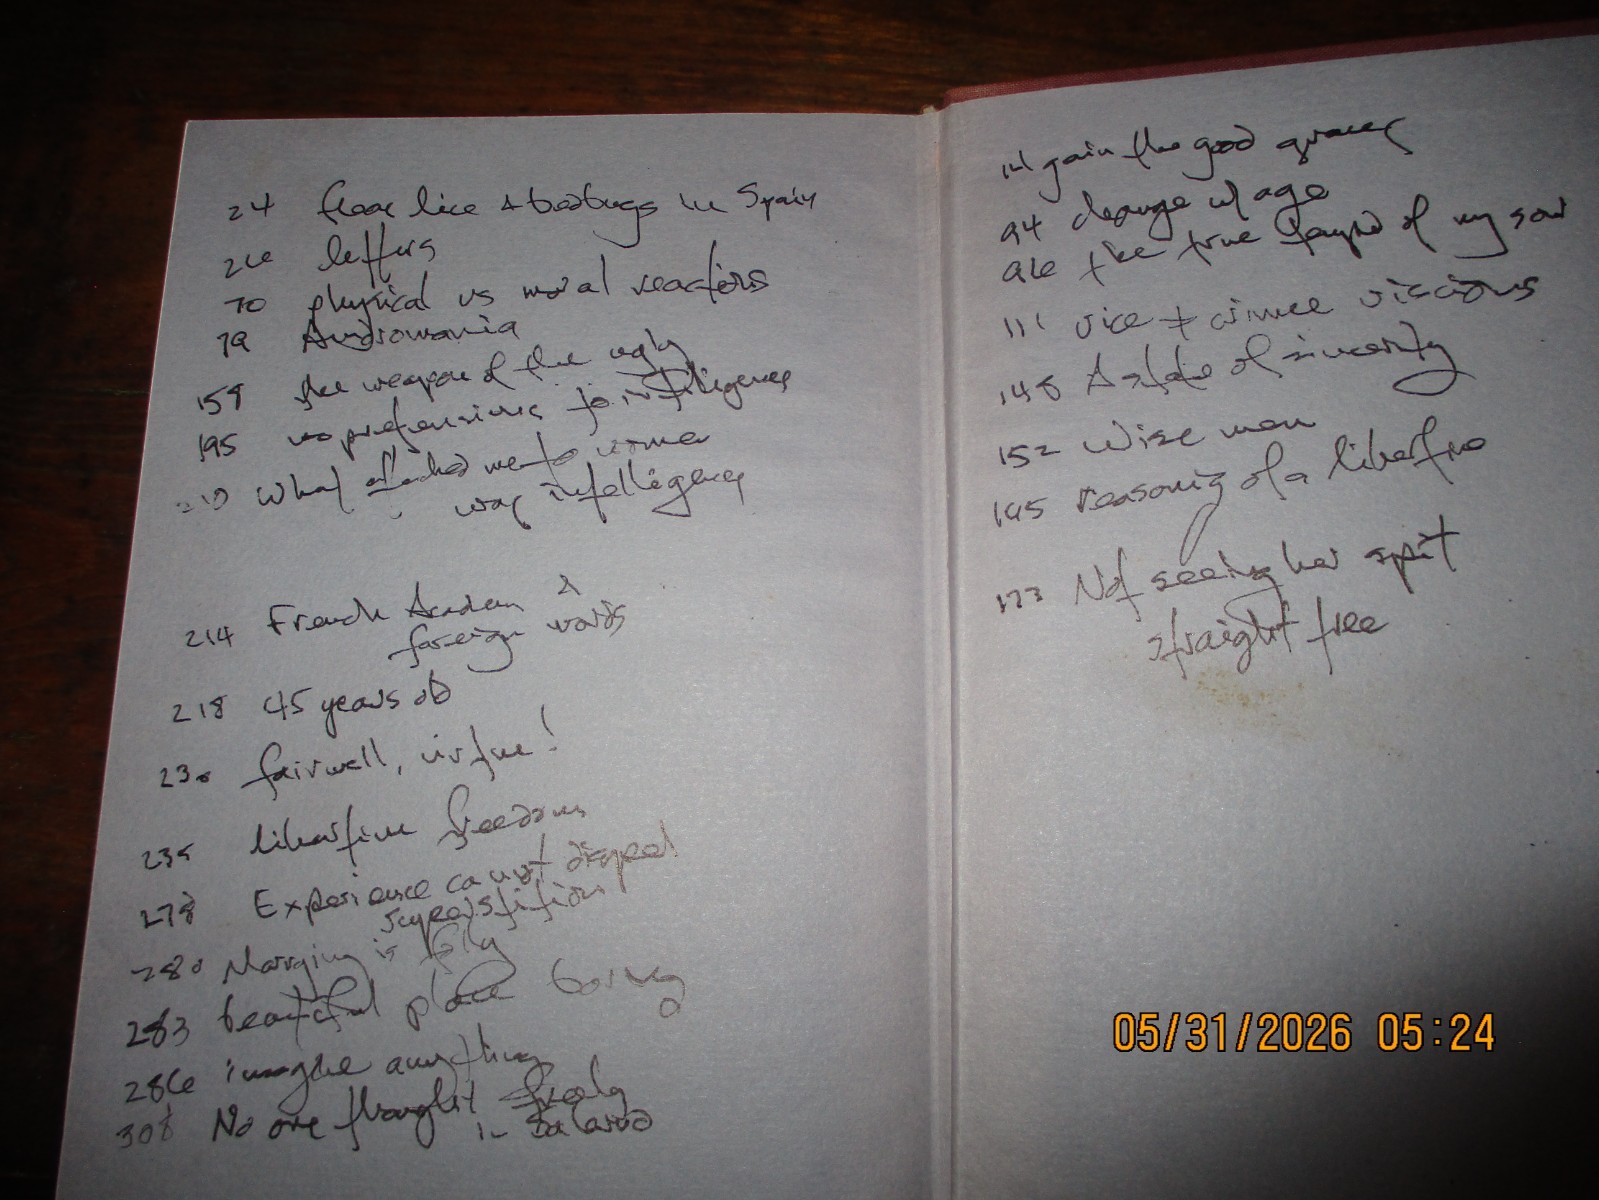 24 flea lice & bedbugs in Spain
26 letters
70 physical vs moral reactions
79 Andromania
159 the weapon of the ugly
195 no pretensions to intelligence
What attached me to women
was intelligence
214 French Academy &
foreign words
218 45 years old
230 fairwell, virtue!
235 libertine freedoms
278 Experience cannot dispel
superstition
280 Marrying is folly
283 beautiful place boring
286 imagine anything
308 No one thought freely
in Salerno
gain the good graces
94 change w/ age
96 the true of my soul
111 vice & crime vicious
148 A state of sincerity
152 Wise man
165 reasoning of a libertine
173 Not seeing her spit
straight free
05/31/2026 05:24